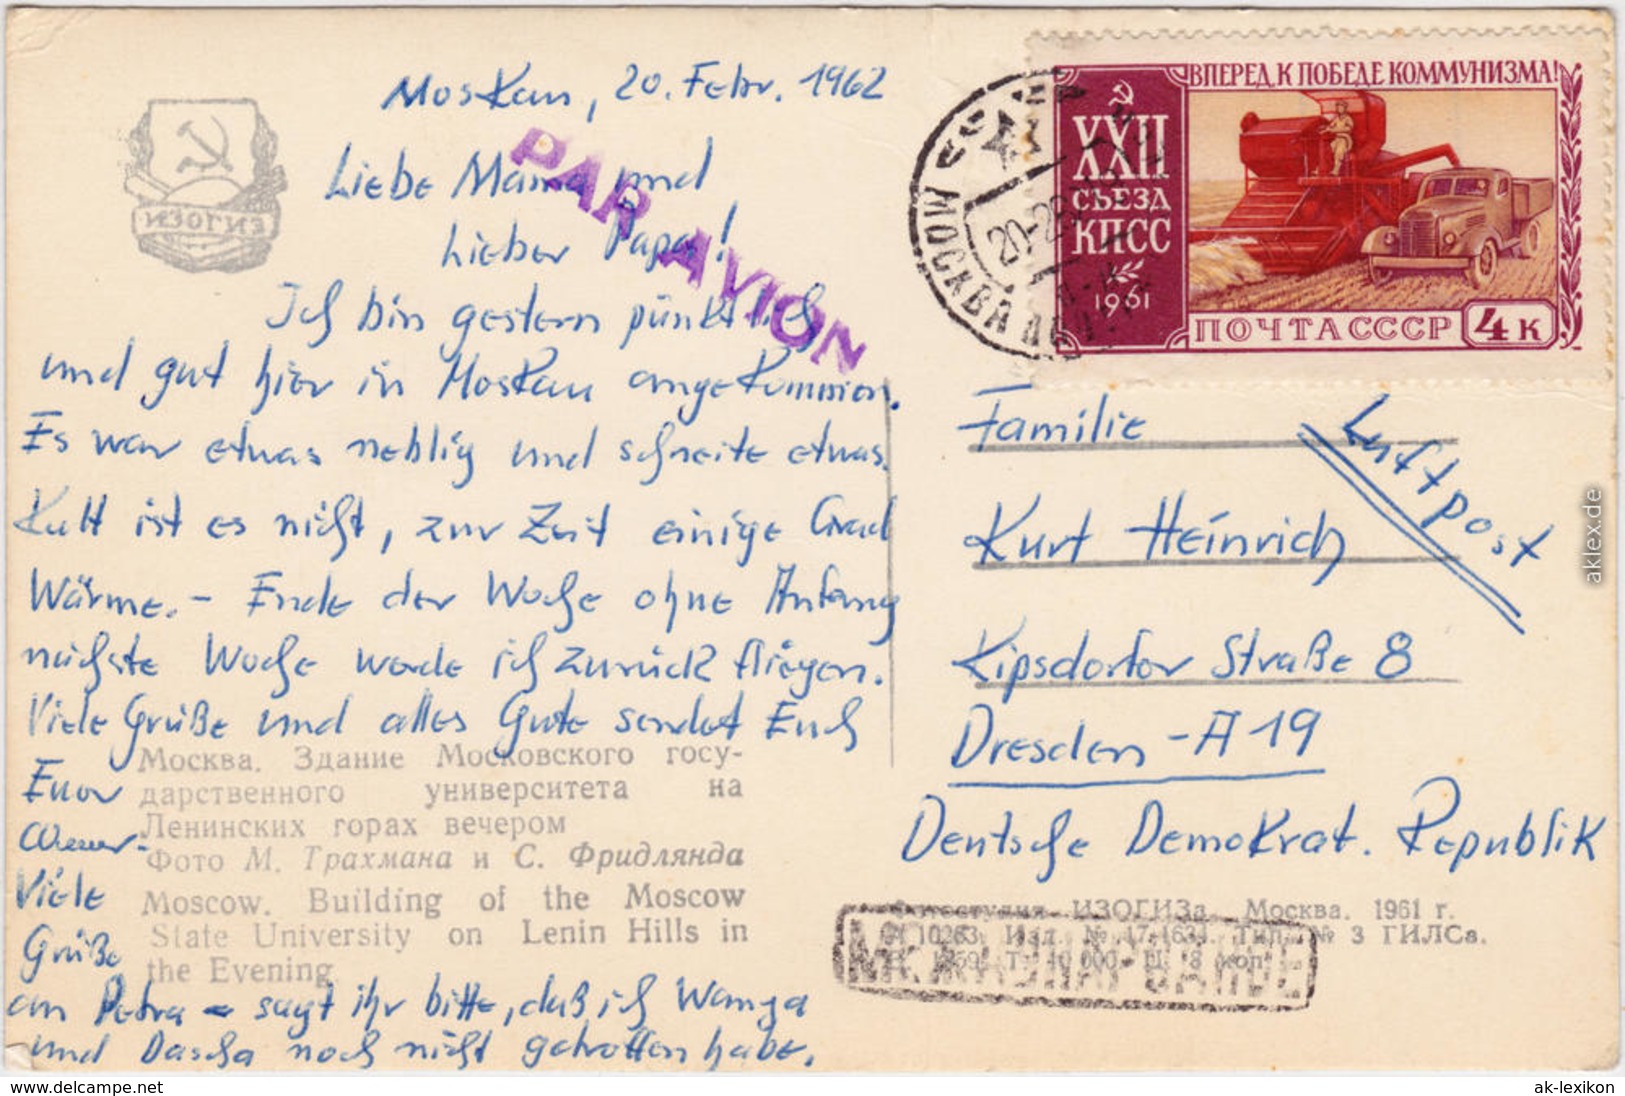 Moskau, 20. Febr. 1962
Liebe Mama und
Lieber Papa!
Ich bin gestern pünktlich
und gut hier in Moskau angekommen.
Es war etwas neblig und schneite etwas.
Kalt ist es nicht, zur Zeit einige Grad
Wärme. - Ende der Woche ohne Anfang
nächste Woche werde ich zurück fliegen.
Viele Grüße und alles Gute sendet Euch
Euer
Viele
Grüße
an Petra - sagt ihr bitte, daß ich Wanja
und Dascha noch nicht getroffen habe.
PAR AVION
ИЗОГИЗ
Москва. Здание Московского госу-
дарственного университета на
Ленинских горах вечером
Фото М. Трахмана и С. Фридлянда
Moscow. Building of the Moscow
State University on Lenin Hills in
the Evening
ВПЕРЕД, К ПОБЕДЕ КОММУНИЗМА!
XXII
СЪЕЗД
КПСС
1961
ПОЧТА СССР 4 К
МОСКВА
Familie
Luftpost
Kurt Heinrich
Kipsdorfer Straße 8
Dresden - A 19
Deutsche Demokrat. Republik
Фотостудия ИЗОГИЗа. Москва. 1961 г.
10263. Изд. № 17-1634. Тип. № 3 ГИЛСа.
40 000. Ц.
МЕЖДУНАРОДНОЕ
aklex.de
www.delcampe.net
ak-lexikon